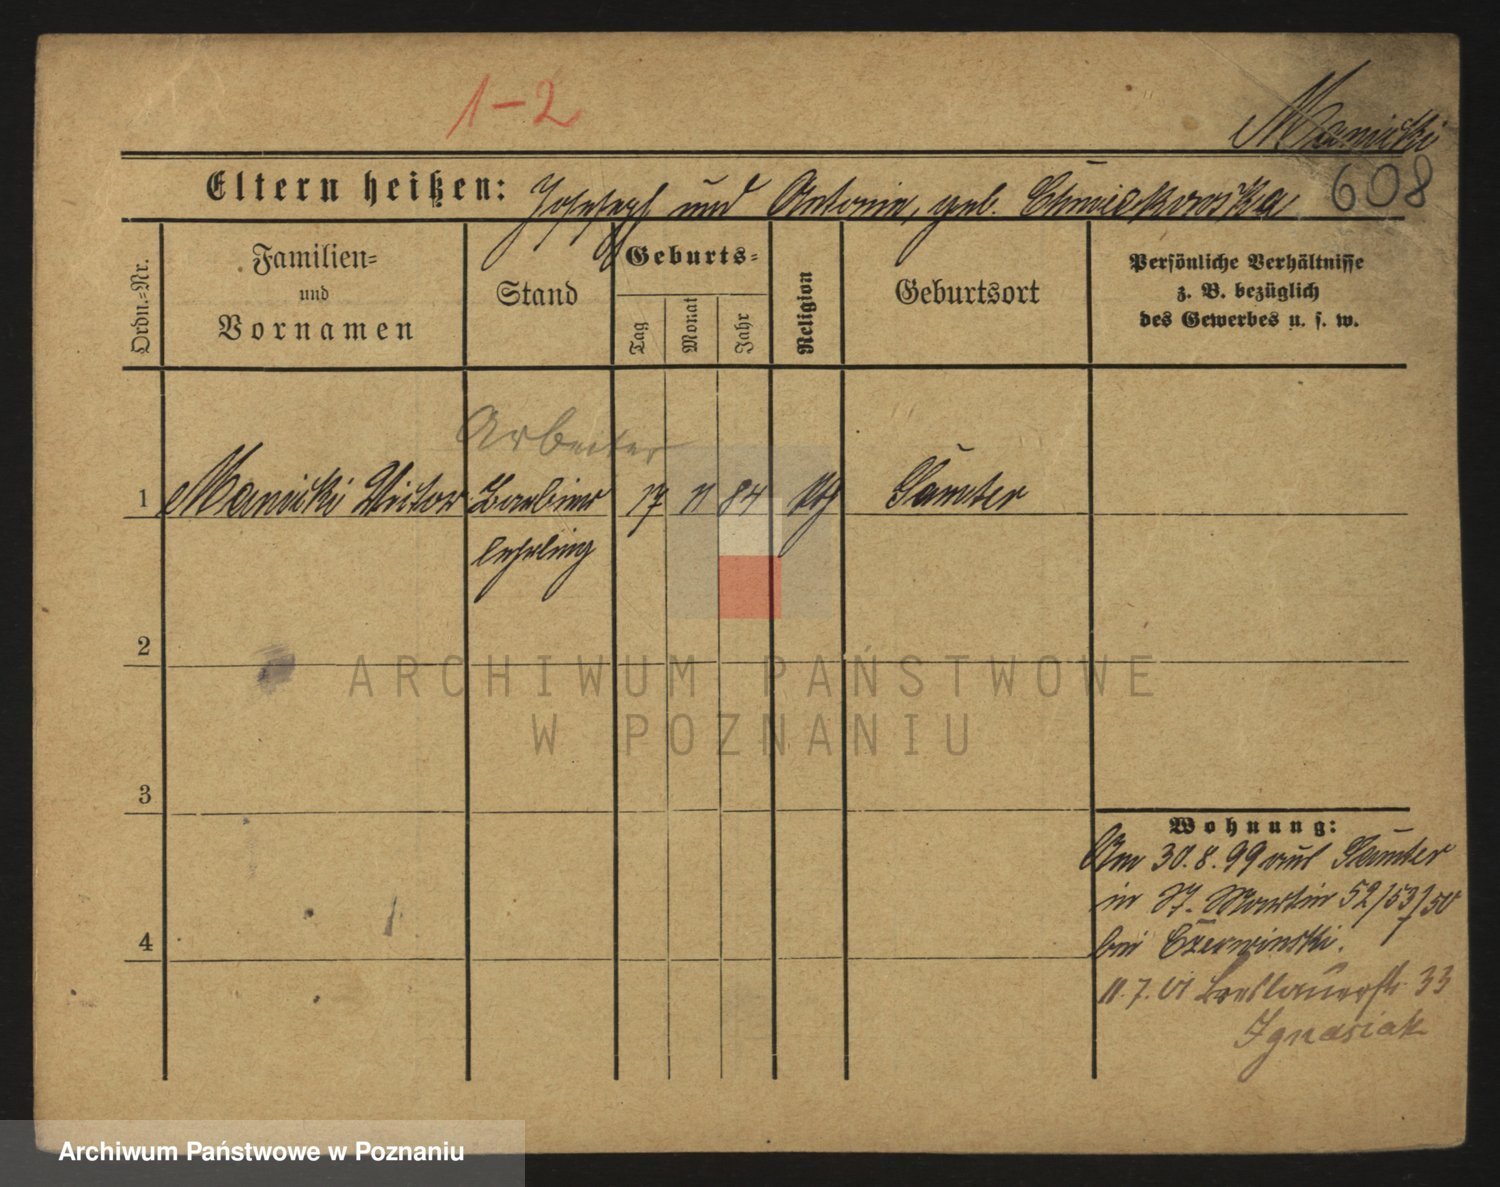 1-2
Manicki
608
Eltern heißen: Joseph und Antonie, geb. Chmielkowska
Ordn.-Nr.
Familien-
und
Vornamen
Stand
Geburts-
Tag
Monat
Jahr
Religion
Geburtsort
Persönliche Verhältnisse
z. B. bezüglich
des Gewerbes u. s. w.
Arbeiter
1 Manicki Victor Barbier 17 11 84 Samter
lehrling
2
ARCHIWUM PAŃSTWOWE
W POZNANIU
3
Wohnung:
Am 30.8.99 aus Samter
in St. Martin 52/53/50
4
bei Czerwinski.
11.7.01 Breslauerstr. 33
Ignasiak
Archiwum Państwowe w Poznaniu